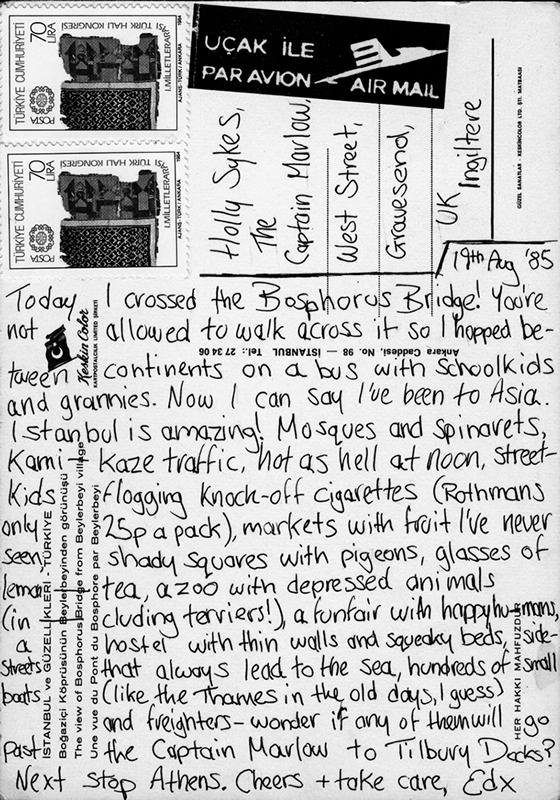 TÜRKİYE CUMHURİYETİ
70
LİRA
POSTA
I.MİLLETLERARASI
TÜRK HALI KONGRESİ
1984
AJANS-TÜRK/ANKARA
TÜRKİYE CUMHURİYETİ
70
LİRA
POSTA
I.MİLLETLERARASI
TÜRK HALI KONGRESİ
1984
AJANS-TÜRK/ANKARA
UÇAK İLE
PAR AVION AIR MAIL
Holly Sykes,
The
Captain Marlow,
West Street,
Gravesend,
UK
Ingiltere
GÜZEL SANATLAR - KESKİNCOLOR LTD. ŞTİ. MATBAASI
19th Aug '85
Today I crossed the Bosphorus Bridge! You're
not allowed to walk across it so I hopped be-
tween continents on a bus with schoolkids
and grannies. Now I can say I've been to Asia.
Istanbul is amazing! Mosques and spinarets,
Kami-Kaze traffic, hot as hell at noon, street-
Kids flogging knock-off cigarettes (Rothmans
only 25p a pack), markets with fruit I've never
seen, shady squares with pigeons, glasses of
lemon tea, a zoo with depressed animals
(in cluding terriers!), a funfair with happy humans,
a hostel with thin walls and squeaky beds, side-
streets that always lead to the sea, hundreds of small
boats (like the Thames in the old days, I guess)
and freighters - wonder if any of them will go
past the Captain Marlow to Tilbury Docks?
Next stop Athens. Cheers + take care, Edx
Keskin Color
KARTPOSTALCILIK LIMITED ŞİRKETİ
Ankara Caddesi, No. 98 — İSTANBUL Tel.: 27 34 06
İSTANBUL ve GÜZELLİKLERİ - TÜRKİYE
Boğaziçi Köprüsünün Beylerbeyinden görünüşü
The view of Bosphorus Bridge from Beylerbeyi village
Une vue du Pont du Bosphore par Beylerbeyi
HER HAKKI MAHFUZDUR